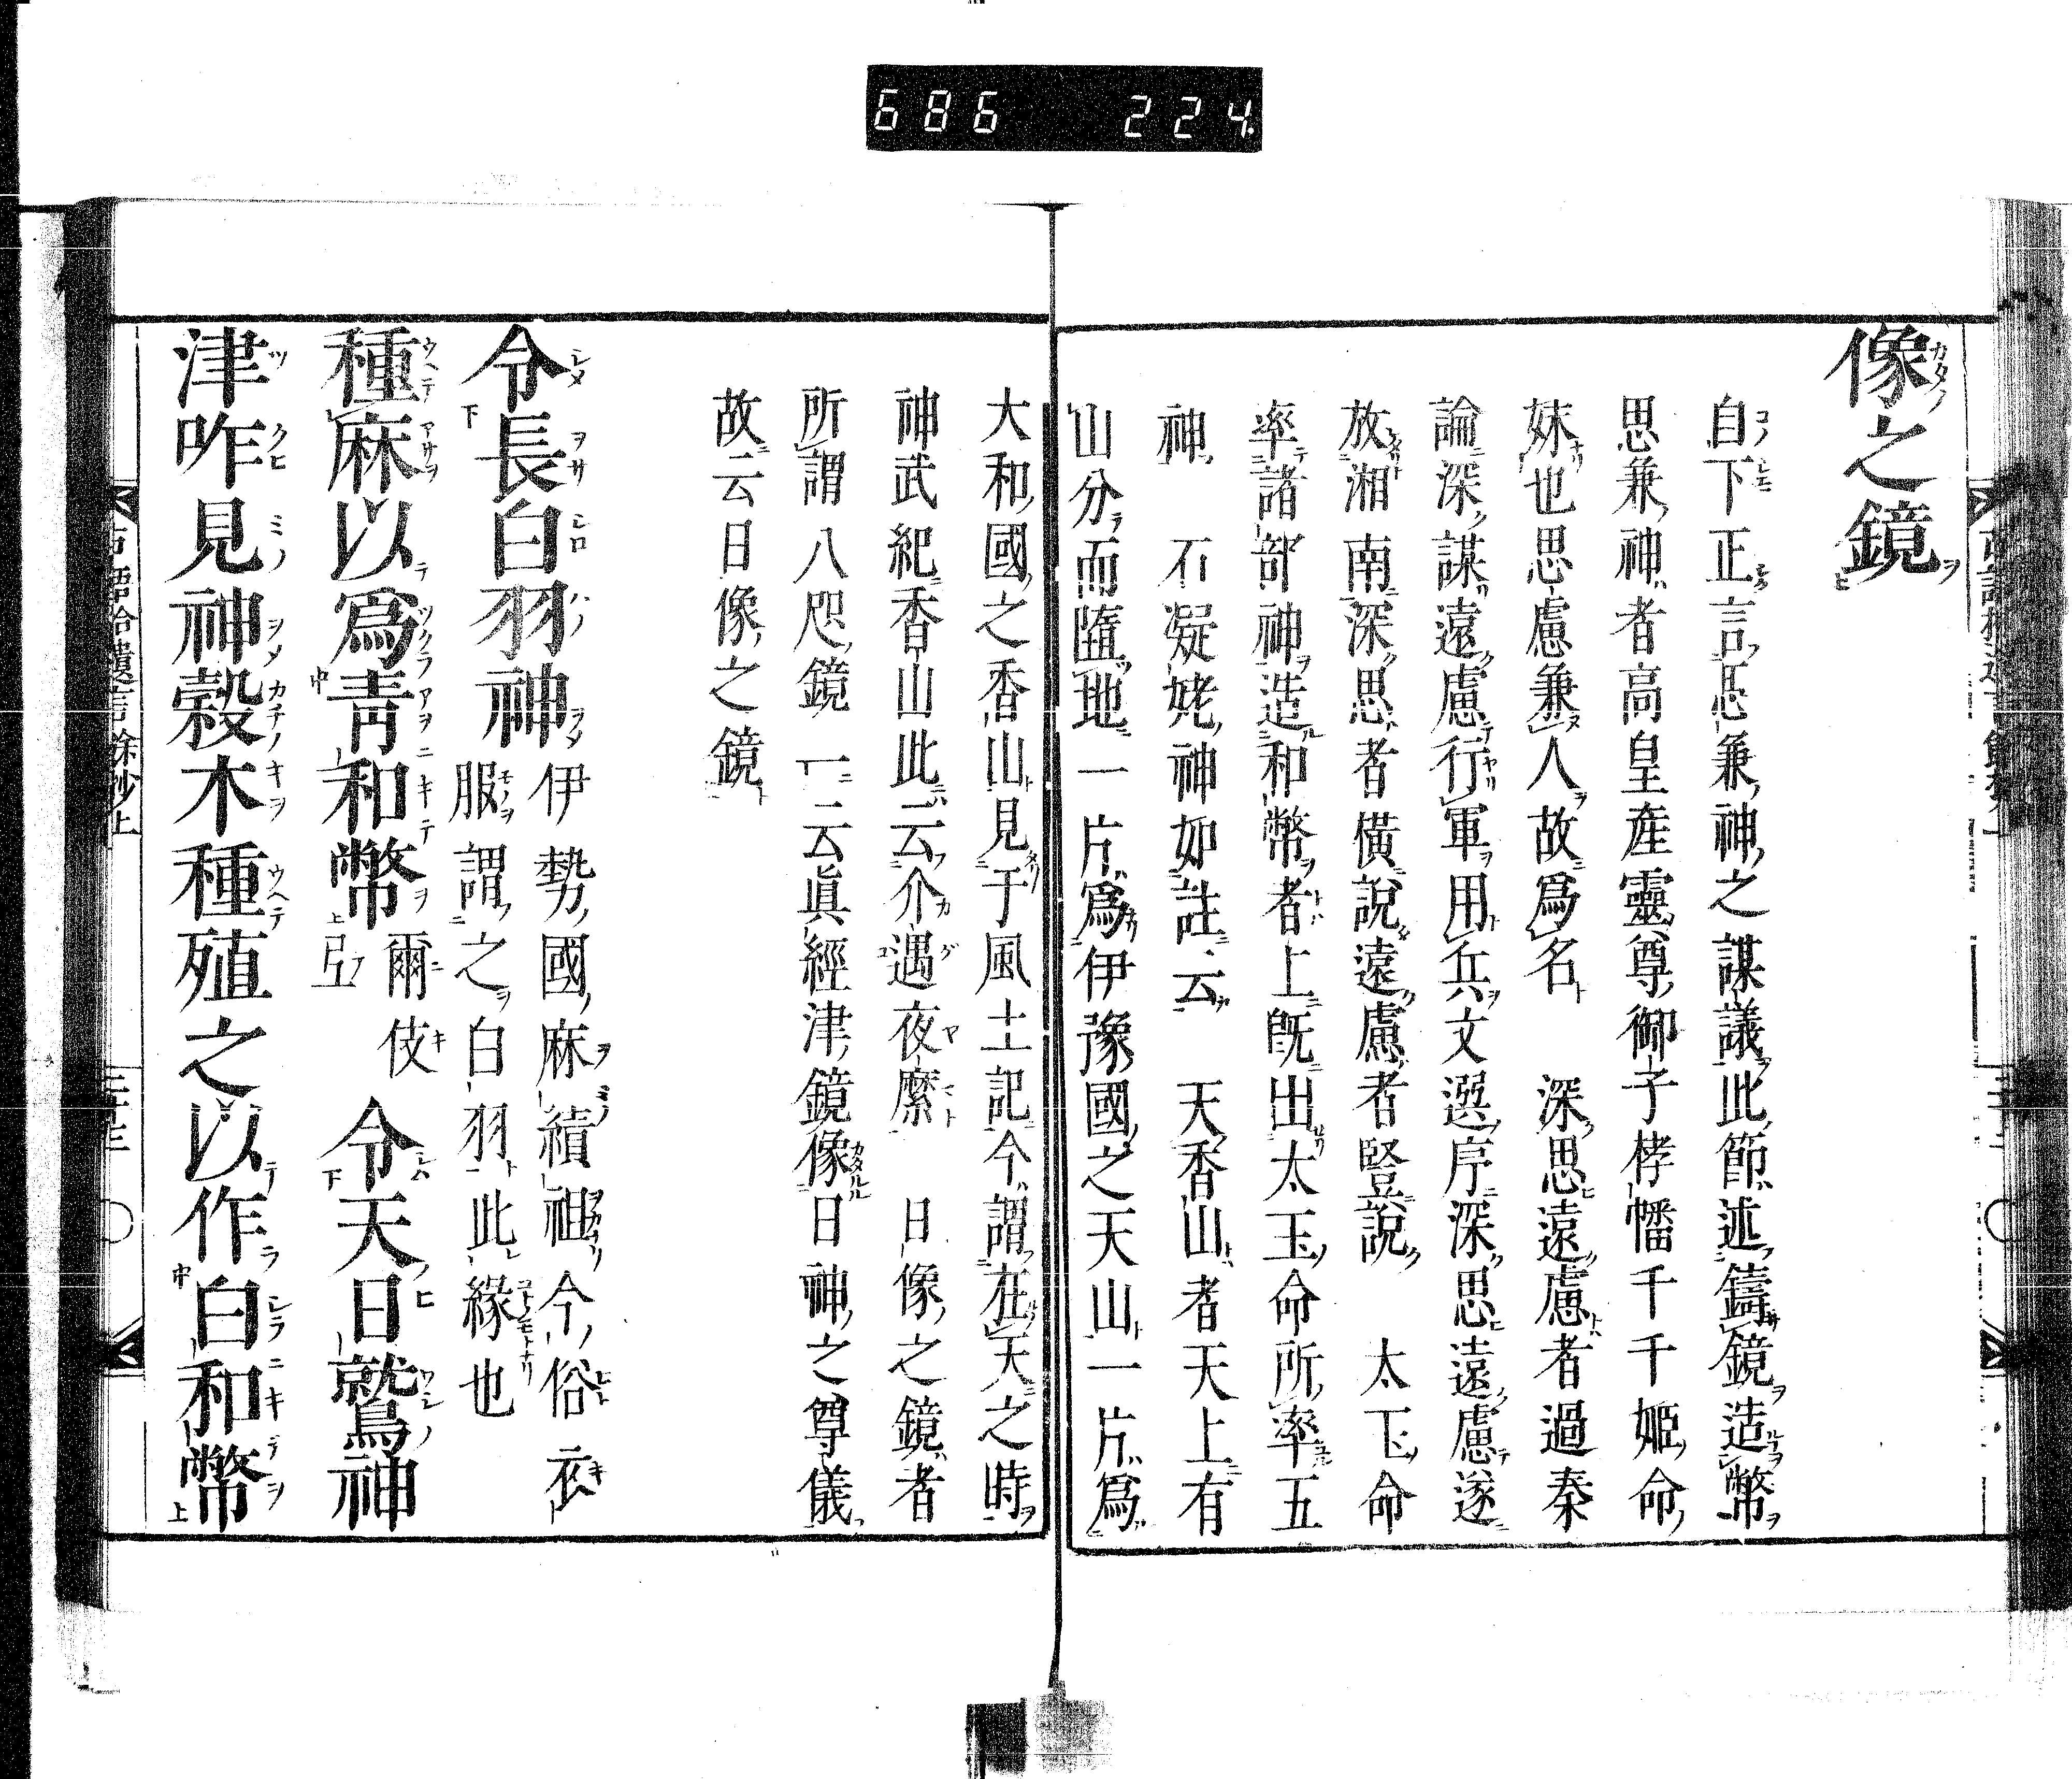 686 224
像之鏡
自下正言思兼神之謀議此節述鑄鏡造幣
思兼神者高皇産靈尊御子栲幡千千姫命
妹也思慮兼人故爲名 深思遠慮者過秦
論深謀遠慮行軍用兵文選序深思遠慮遂
放湘南深思者横説遠慮者豎説 太玉命
率諸部神造和幣者上既出太玉命所率五
神 石凝姥神如註云 天香山者天上有
山分而墮地一片爲伊豫國之天山一片爲
大和國之香山見于風土記今謂在天之時
神武紀香山此云介遇夜麼 日像之鏡者
所謂八咫鏡一云眞經津鏡像日神之尊儀
故云日像之鏡
令長白羽神伊勢國麻績祖今俗衣
服謂之白羽此縁也
種麻以爲青和幣爾伎
令天日鷲神
津咋見神穀木種殖之以作白和幣
古語拾遺言餘抄上